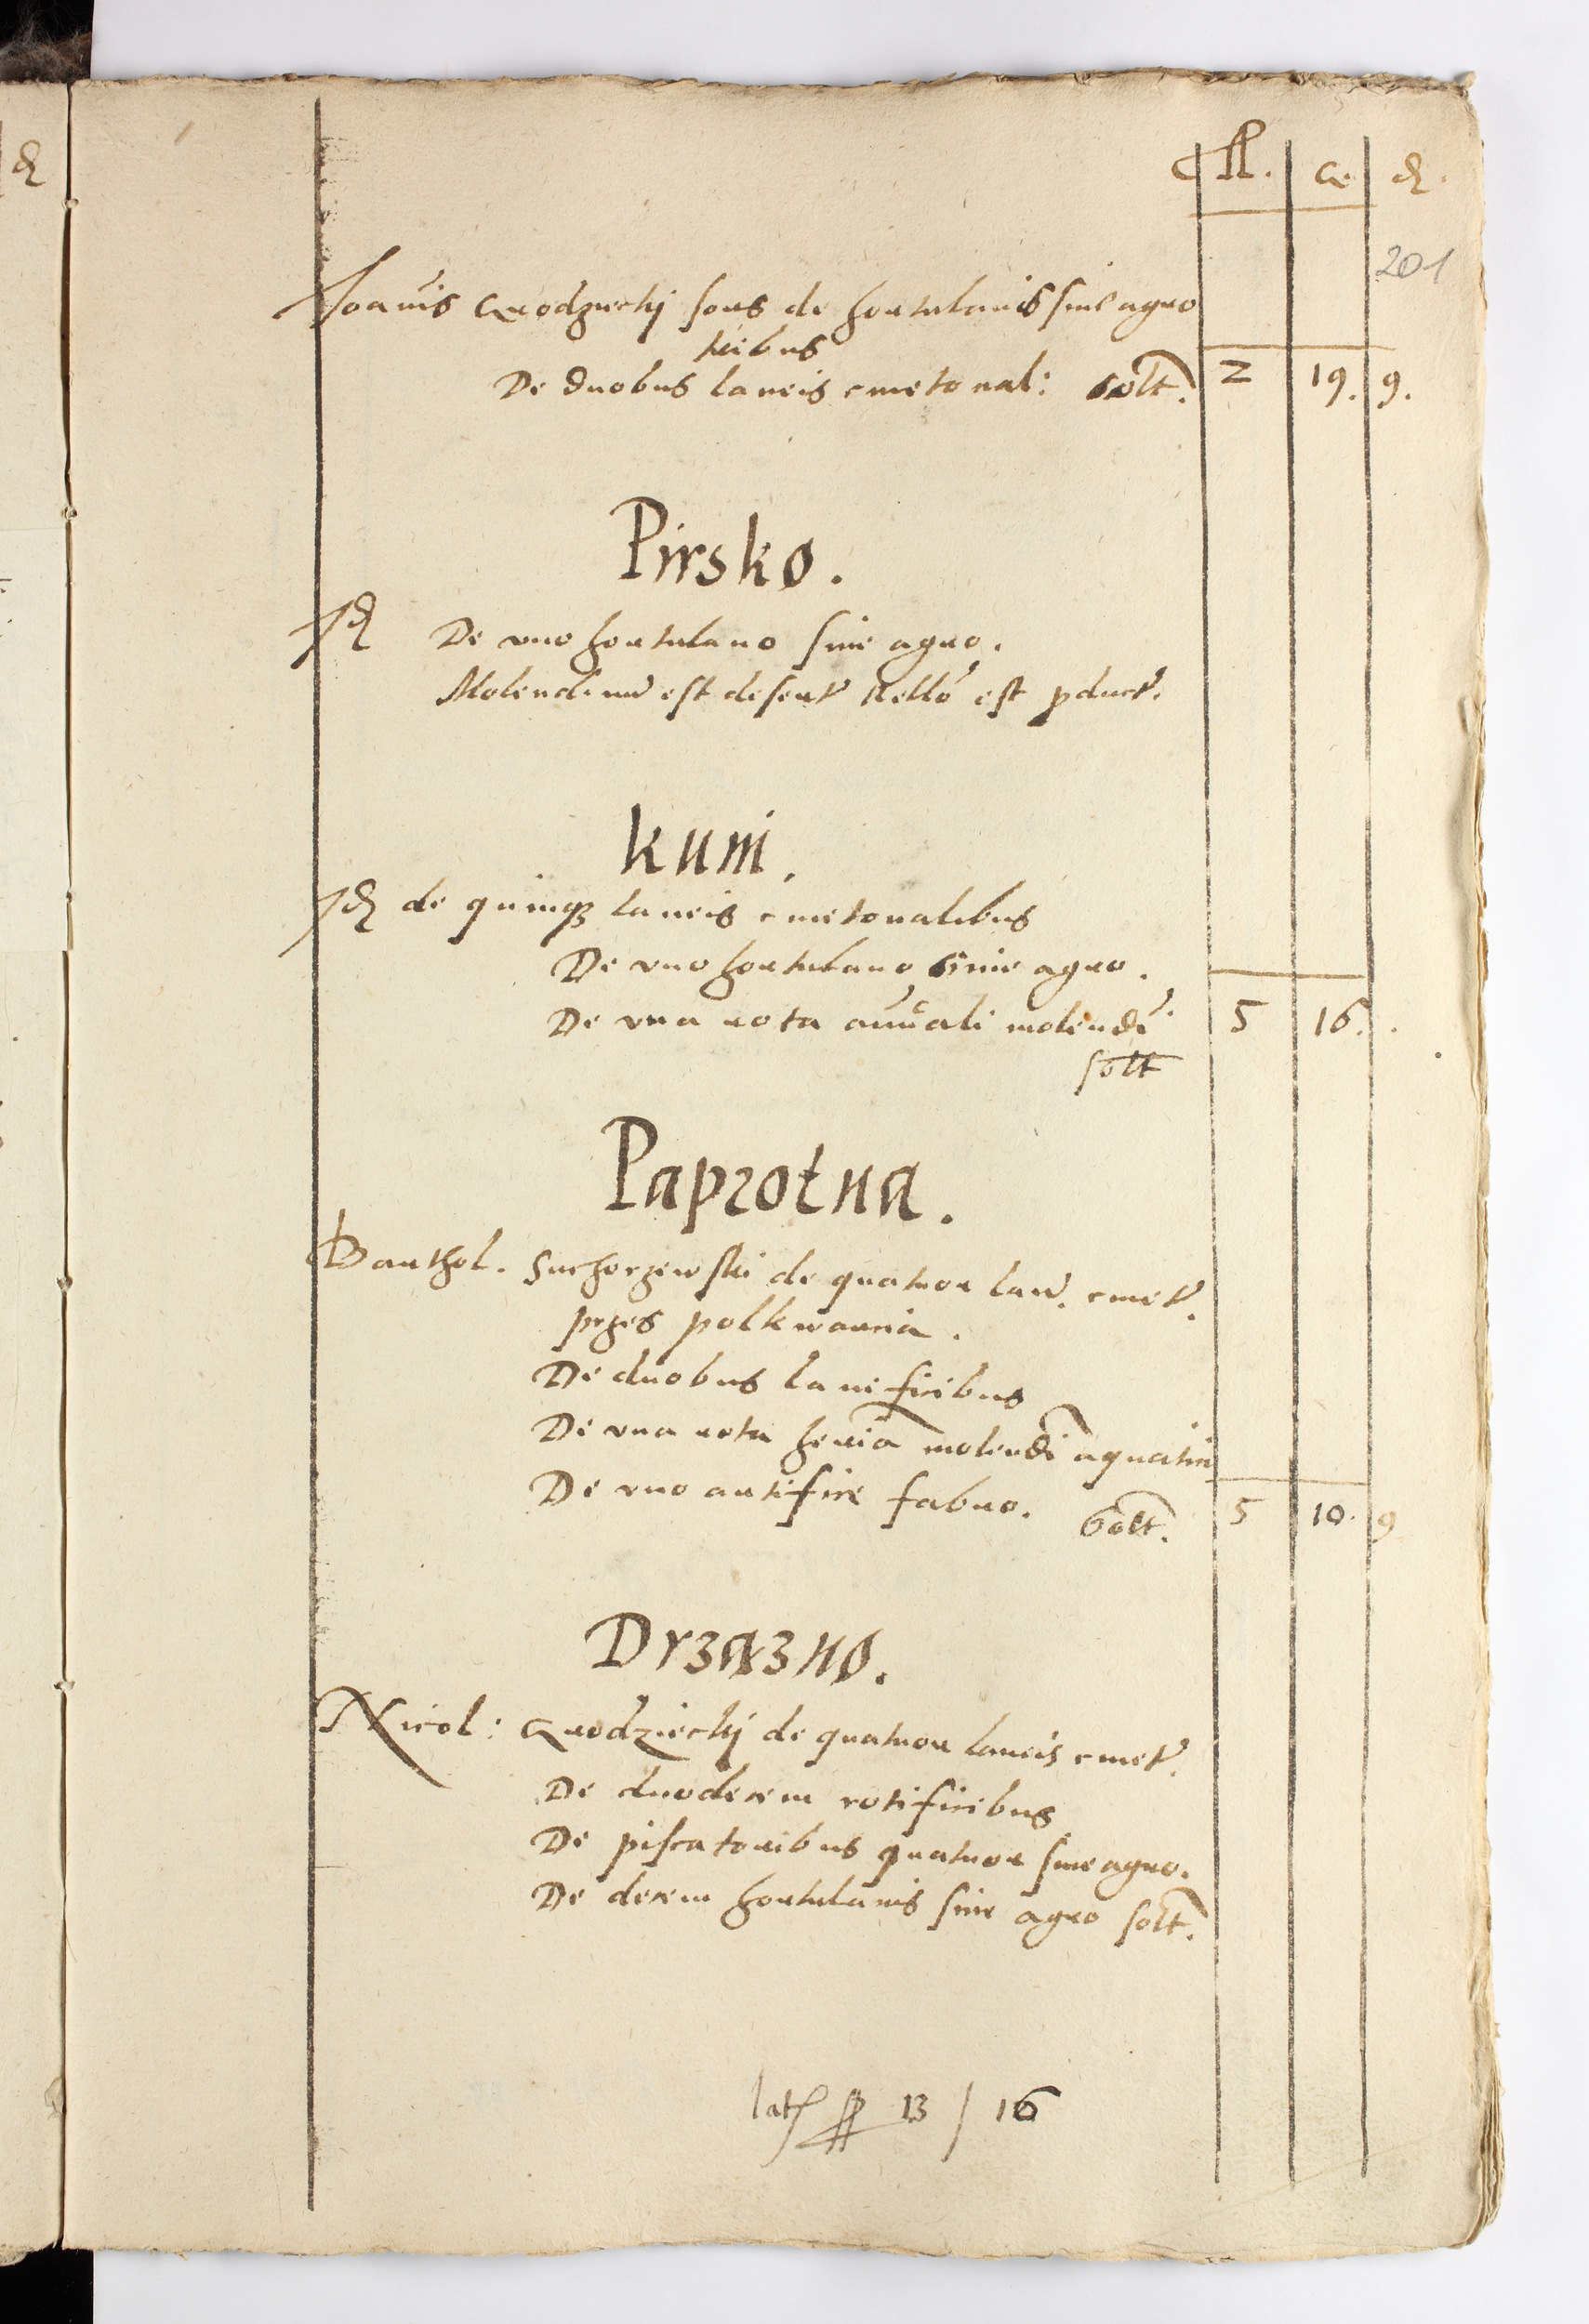 fl. gr. d.
201
Joanis Grodzieckj sors de hortulanis sine agro
tribus
De duobus laneis cmetonal: solt. 2 19. 9.
Pirsko.
Id De uno hortulano sine agro.
Molendinu est desert est pduct.
kunj.
Id de quinqz laneis cmetonalibus
De uno hortulano sine agro.
De una rota annuali molendi 5 16.
solt
Paprotna.
Barthol. Suchorzewski de quatuor lan. cmet.
przes polkwarcia.
De duobus lanificibus
De una rota molendi aquatici
De uno artifice fabro. Solt. 5 10. 9
Drzazno.
Nicol: Grodzieckj de quatuor laneis cmet.
De duodecem rotificibus
De piscatoribus quatuor sine agro.
De decem hortulanis sine agro solt.
lat 13 / 16